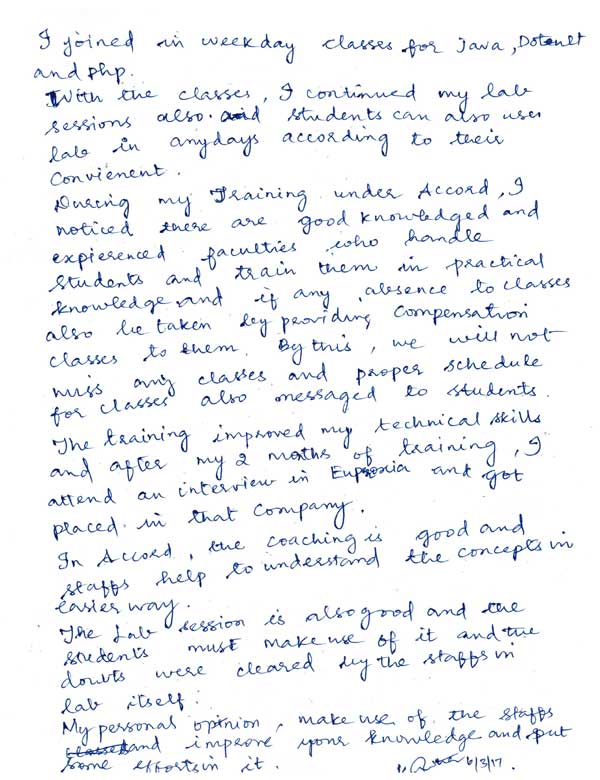 I joined in weekday classes for Java, Dotnet
and php.
With the classes, I continued my lab
sessions also. and students can also uses
lab in anydays according to their
Convienent.
During my Training under Accord, I
noticed there are good knowledged and
expierenced faculties who handle
students and train them in practical
knowledge and if any absence to classes
also be taken by providing Compensation
classes to them. By this, we will not
miss any classes and proper schedule
for classes also messaged to students.
The training improved my technical skills
and after my 2 moths of training, I
attend an interview in and got
placed in that Company.
In Accord, the coaching is good and
staffs help to understand the concepts in
easier way.
The Lab session is also good and the
students must make use of it and the
doubts were cleared by the staffs in
lab itself.
My personal opinion, make use of the staffs
and improve your knowledge and put
some efforts in it. 6/3/17.